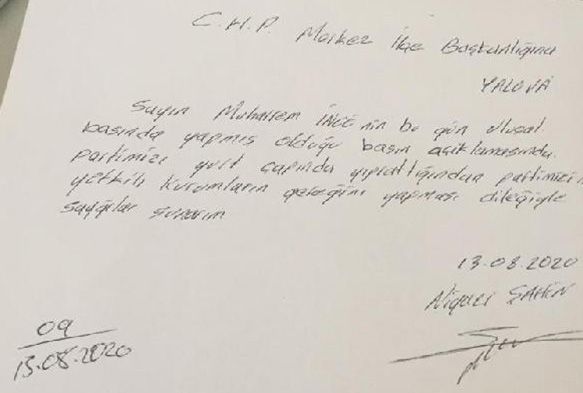 C.H.P. Merkez İlçe Başkanlığına
YALOVA
Sayın Muharrem İNCE'nin bu gün ulusal
basında yapmış olduğu basın açıklamasında.
partimizi yurt çapında yıprattığından partimizin
yetkili kurumların gereğini yapması dileğiyle
saygılar sunarım
13.08.2020
ŞAHİN
09
13.08.2020